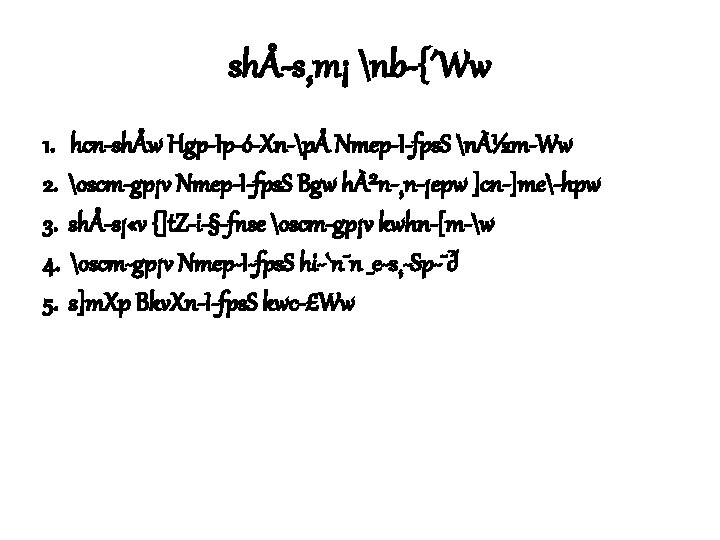 shÅ-s‚m¡ \nb-{´Ww
1. hcn-shÅw Hgp-Ip-ó-Xn-\pÅ Nmep-I-fpsS \nÀ½m-Ww
2. \oscm-gp¡v Nmep-I-fpsS Bgw hÀ²n-¸n-¡epw ]cn-]me\-hpw
3. shÅ-s¡«v {]tZ-i-§-fnse \oscm-gp¡v kwhn-[m-\w
4. \oscm-gp¡v Nmep-I-fpsS hi-`n¯n _e-s¸-Sp-¯Â
5. s]mXp BkvXn-I-fpsS kwc-£Ww